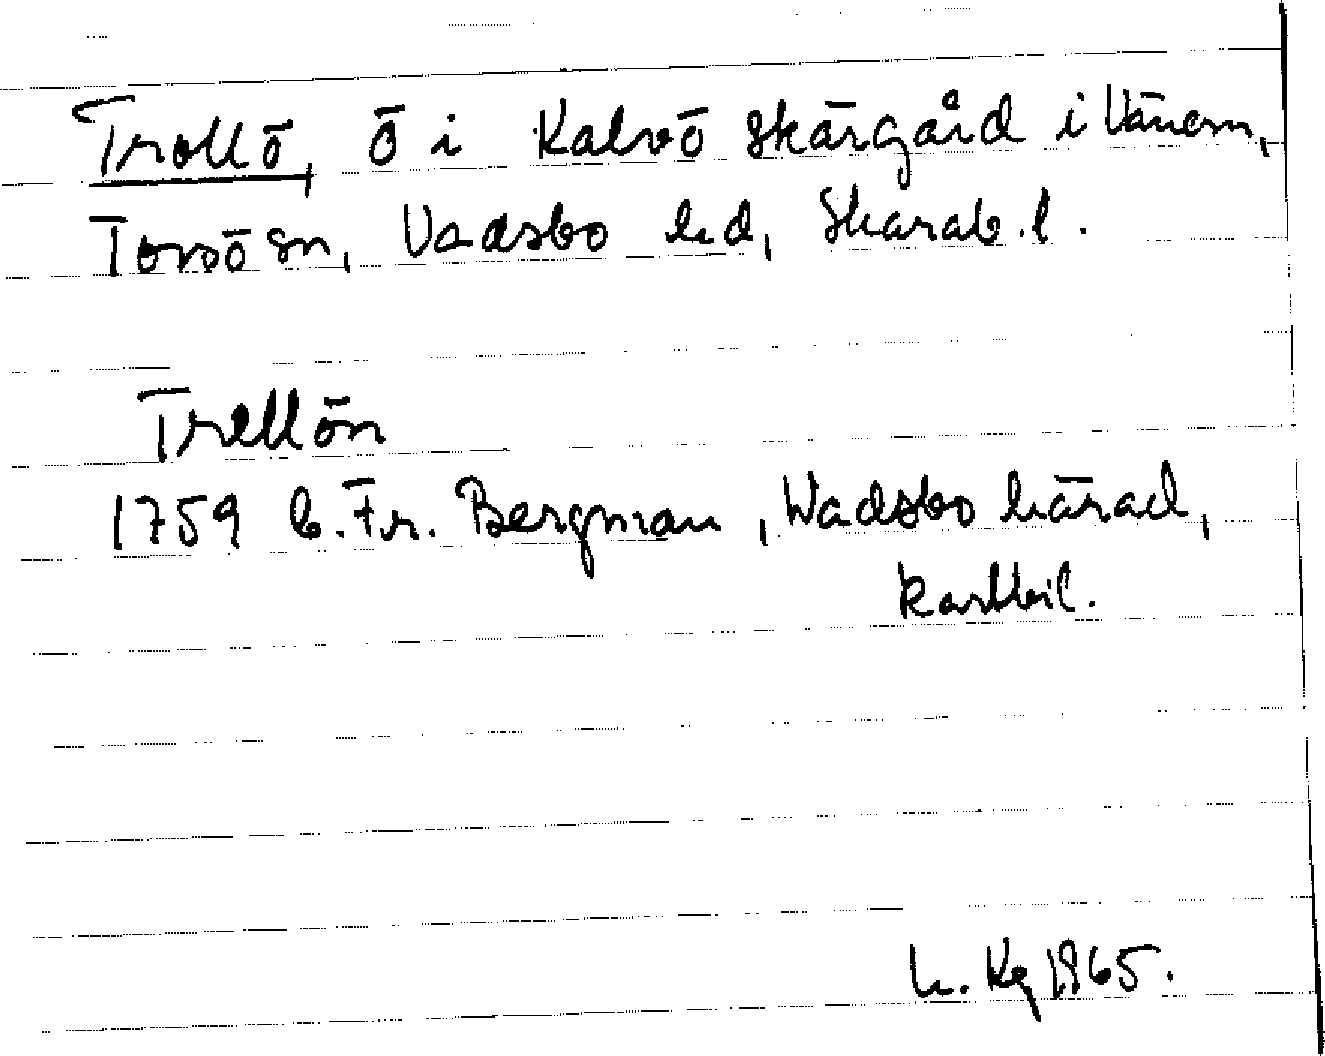 Trollö, ö i Kalvö skärgård i Vänern,
Torsö sn, Vadsbo hd, Skarab.l.
Trellön
1759 C. Fr. Bergman, Wadsbo härad,
kartbil.
L. Kg 1965.